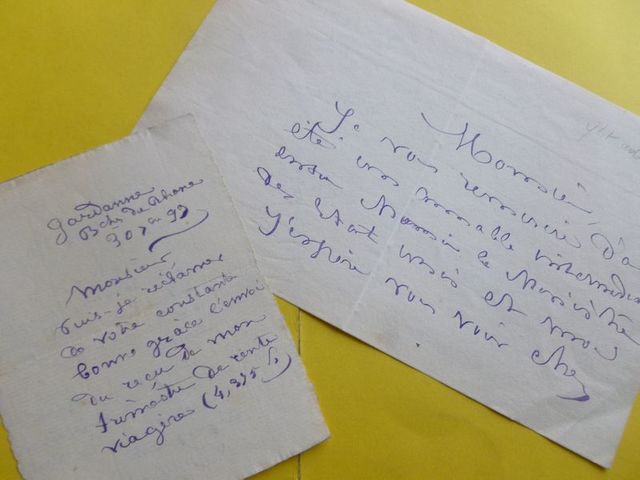 Gardanne
Bches du Rhône
30 7 99
Monsieur,
Puis-je réclamer
de votre constante
bonne grâce l'envoi
du reçu de mon
trimestre de rente
viagère (4,395 f)
Monsieur,
Je vous remercie d'a
été mon aimable intermédia
entre Monsieur le Ministre
des et moi
J'espère vous voir chez